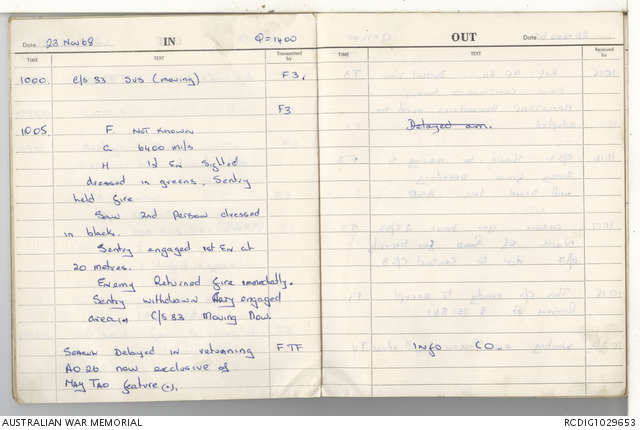 Date 23 Nov 68 IN Φ = 1400
TIME TEXT Transmitted by
1000. C/S 83 SUS (moving) F3.
F3
1005. F. Not Known
G 6400 mils
H 1d En Sighted
dressed in greens. Sentry
held fire
Saw 2nd Person dressed
in blacks.
Sentry engaged 1st En at
20 metres.
Enemy Returned fire immediatly.
Sentry withdrawn engaged
area C/S 83 Moving Now.
Delayed in returning F TF
AO 26 now exclusive of
MAY TAO feature (.).
Date OUT
TIME TEXT Received by
Delayed am.
INFO CO.
AUSTRALIAN WAR MEMORIAL RCDIG1029653